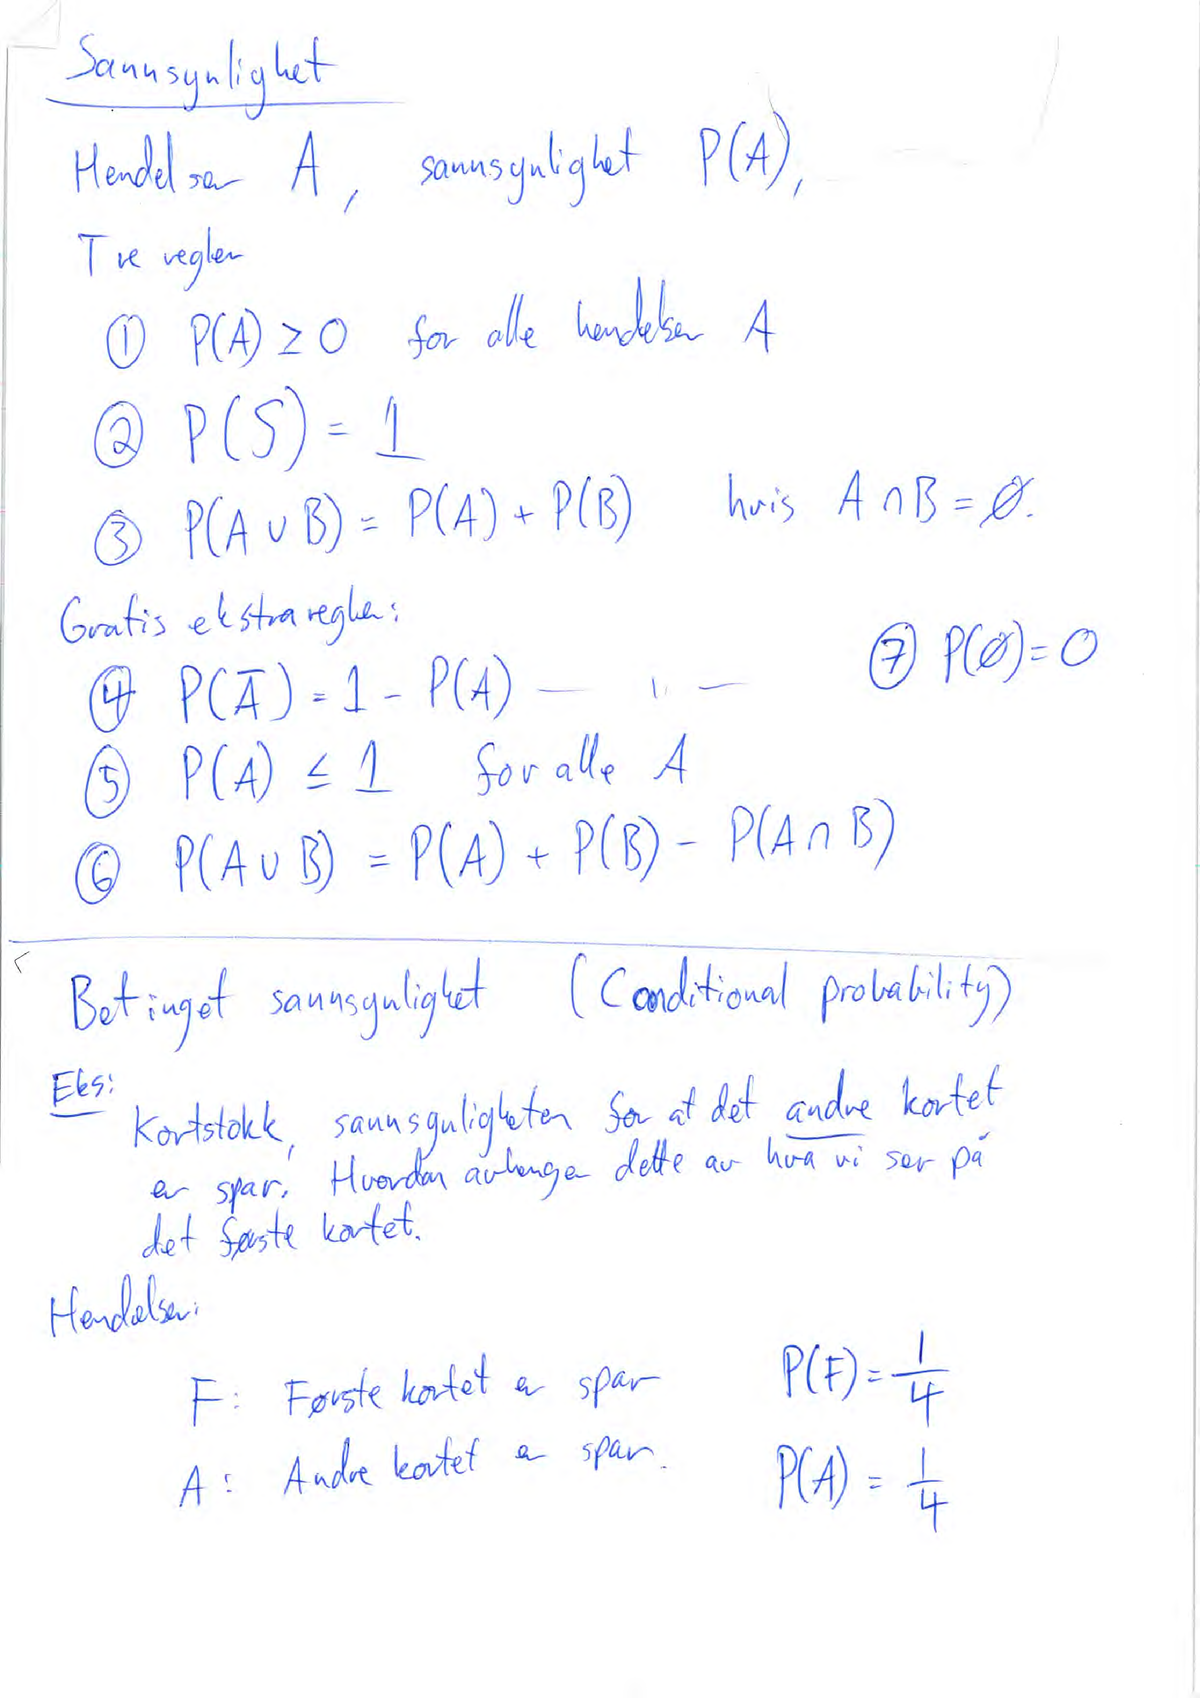 Sannsynlighet
Hendelser A, sannsynlighet P(A),
Tre regler
① P(A) ≥ 0 for alle hendelser A
② P(S) = 1
③ P(A ∪ B) = P(A) + P(B) hvis A ∩ B = ∅.
Gratis ekstraregler:
⑦ P(∅) = 0
④ P(Ā) = 1 - P(A) — " —
⑤ P(A) ≤ 1 for alle A
⑥ P(A ∪ B) = P(A) + P(B) - P(A ∩ B)
Betinget sannsynlighet (Conditional probability)
Eks:
Kortstokk, sannsynligheten for at det andre kortet
er spar. Hvordan avhenger dette av hva vi ser på
det første kortet.
Hendelser:
F: Første kortet er spar P(F) = 1/4
A: Andre kortet er spar. P(A) = 1/4